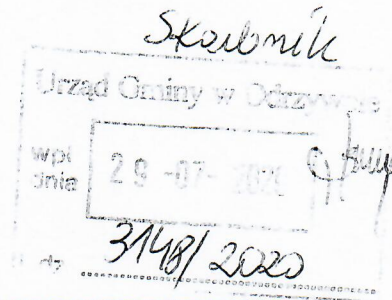 Skarbnik
Urząd Gminy w Odrzywole
wpł
dnia
29 -07- 2020
3148/2020